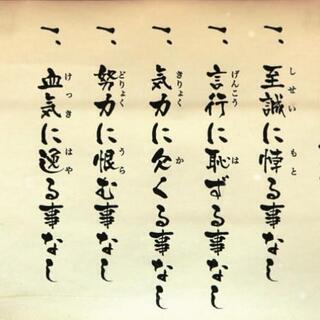 しせい もと
一、至誠に悖る事なし
げんこう は
一、言行に恥ずる事なし
きりょく か
一、気力に欠くる事なし
どりょく うら
一、努力に恨む事なし
けっき はや
一、血気に逸る事なし